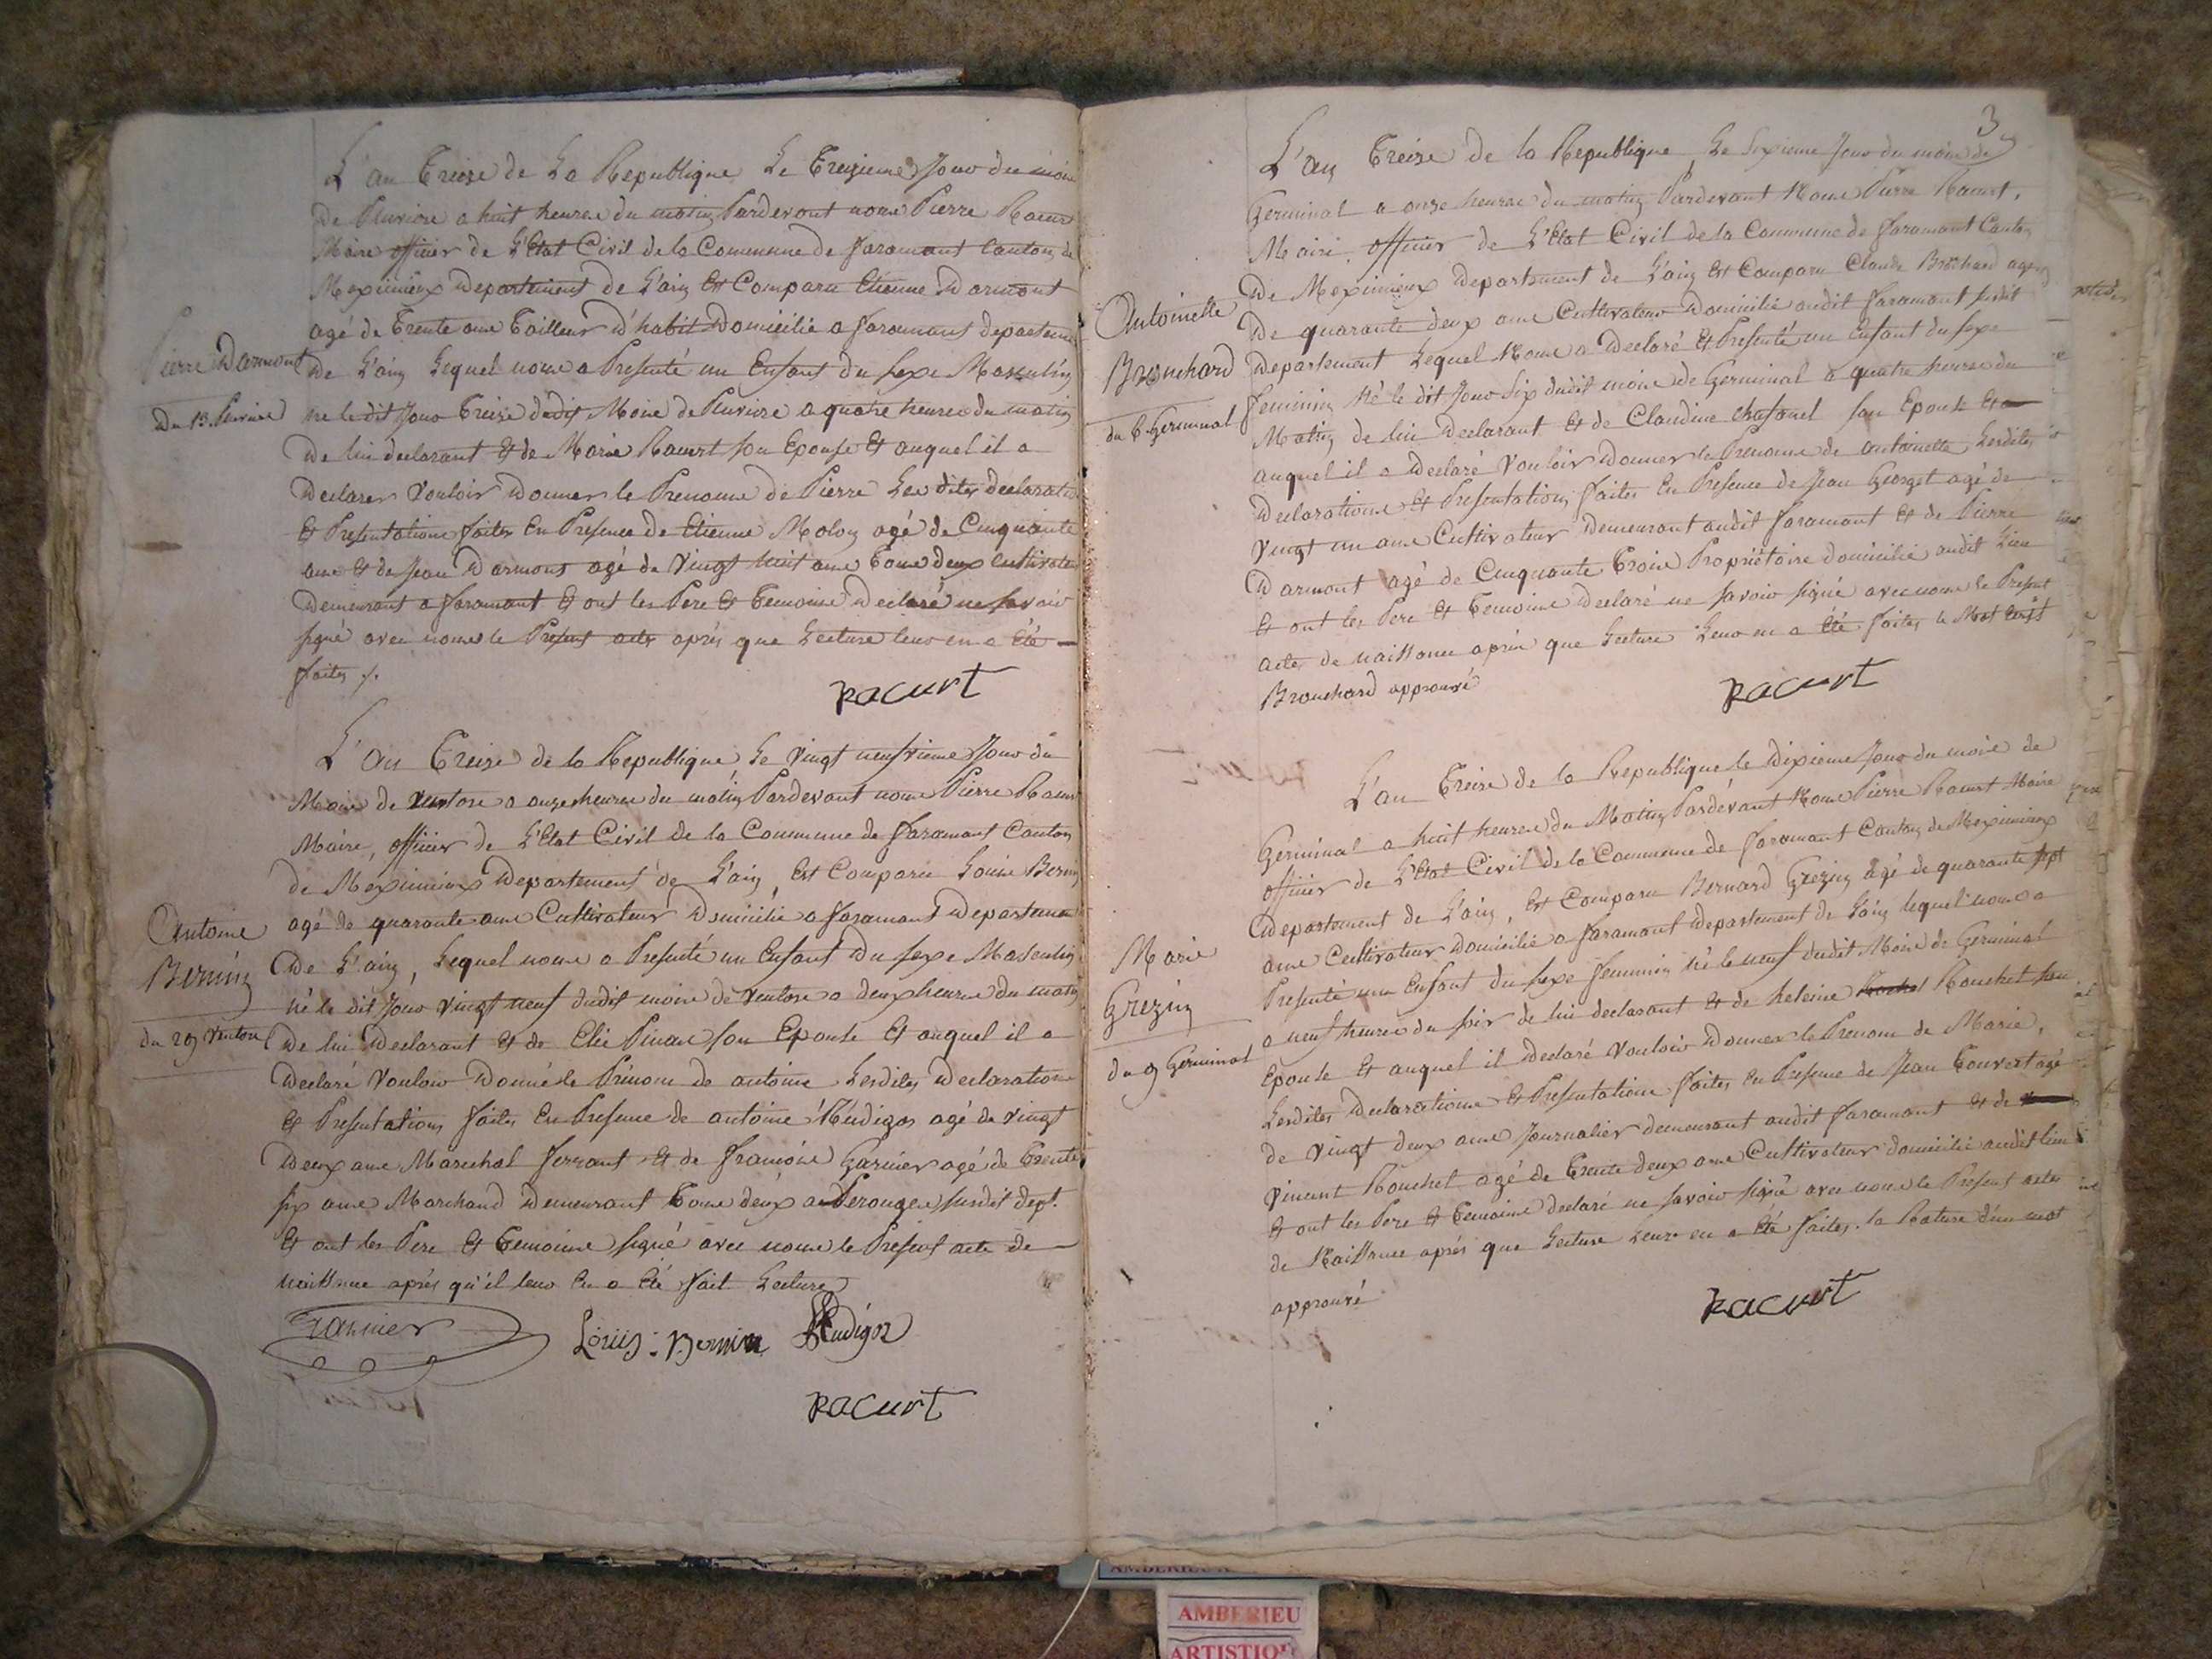 L'an Treize de La Republique Le Treizieme Jour du mois
de Pluviose a huit heures du matin Pardevant nous Pierre Racurt
Maire officier de L'Etat Civil de la Commune de faramant Canton de
Meximieux Departement de L'ain Est Comparu Etienne Darmont
agé de Trente ans Tailleur d'habit Domicilié a faramant departement
Pierre Darmont
De L'ain Lequel nous a Presenté un Enfant du sexe Masculin
Du 13 Pluviose
né le dit Jour Treize dudit Mois de Pluviose a quatre heures du matin
De lui declarant et de Marie Racurt son Epouse Et auquel il a
Declarer Vouloir Donner le Prenoms de Pierre Les dites declaration
Et Presentations faites En Presence de Etienne Molon agé de Cinquante
ans et de Jean Darmont agé de Vingt huit ans Tous deux Cultivateur
Demeurant a faramant Et ont les Pere Et Temoins Declaré ne savoir
signé avec nous le Present acte aprés que Lecture leur en a Été
faites /.
Racurt
L'an Treize de la Republique Le Vingt neufvieme Jour du
Mois de Ventose a onze heures du matin Pardevant nous Pierre Racurt
Maire, officier de L'Etat Civil de la Commune de faramant Canton
de Meximieux Departement de L'ain, Est Comparu Louis Bernin
Antoine
agé de quarante ans Cultivateur Domicilié a faramant Departement
Bernin
De L'ain, Lequel nous a Presenté un Enfant du sexe Masculin
né le dit Jour Vingt neuf dudit mois de Ventose a deux heures du matin
du 29 Ventose
De lui Declarant et de Elie Pinan son Epouse Et auquel il a
Declaré Vouloir Donné le Prénoms de antoine Lesdites Declaration
et Presentations faites En Presence de antoine Rudigoz agé de vingt
Deux ans Marechal ferrant et de françois Garnier agé de Trente
six ans Marchand Demeurant Tous deux a Perouges susdit dept.
Et ont les Pere Et Temoins signé avec nous le Present acte de
naissance aprés qu'il leur En a Été fait Lecture
Garnier Louis Bernin Rudigoz
Racurt
3
L'an Treize de la Republique, Le Sixieme Jour du mois de
Germinal a onze heures du matin Pardevant Nous Pierre Racurt,
Maire, officier de L'Etat Civil de la Commune de faramant Canton
De Meximieux Departement de L'ain Est Comparu Claude Brochard agé
Antoinette
De quarante deux ans Cultivateur Domicilié audit faramant susdit
Brouchard
Departement Lequel Nous a Declaré Et Presenté un Enfant du sexe
du 6 Germinal
feminin Né le dit Jour Six dudit mois de Germinal a quatre heures du
Matin de lui Declarant Et de Claudine son Epouse Et
auquel il a Declaré Vouloir Donner le Prenoms de antoinette Lesdites
Declarations Et Presentations faites En Presence de Jean Georget agé de
Vingt un ans Cultivateur Demeurant audit faramant Et de Pierre
Darmont agé de Cinquante Trois Propriétaire domicilié audit Lieu
Et ont les Pere Et Temoins Declaré ne savoir signé avec nous le Present
acte de naissance aprés que Lecture Leur en a Été faites le Mot
Brouchard approuvé
Racurt
L'an Treize de la Republique le Dixieme Jour du mois de
Germinal a huit heures du Matin Pardevant Nous Pierre Racurt Maire
officier de L'Etat Civil de la Commune de faramant Canton de Meximieux
Departement de L'ain, Est Comparu Bernard Grezin agé de quarante sept
Marie
ans Cultivateur Domicilié a faramant departement de L'ain lequel nous a
Grezin
Presenté un Enfant du sexe feminin né le neuf dudit Mois de Germinal
du 9 Germinal
a neuf heures du soir de lui declarant et de heleine Rouchet son
Epouse Et auquel il Declaré Vouloir Donner le Prenom de Marie,
Lesdites Declarations Et Presentations faites En Presence de Jean Touvert agé
de Vingt deux ans Journalier demeurant audit faramant et de
Vincent Rouchet agé de Trente deux ans Cultivateur domicilié audit lieu
Et ont les Pere Et Temoins declaré ne savoir signé avec nous le Présent acte
de Naissance aprés que Lecture Leurs en a Été faites. la Rature d'un mot
approuvé
Racurt
AMBERIEU
ARTISTIQUE